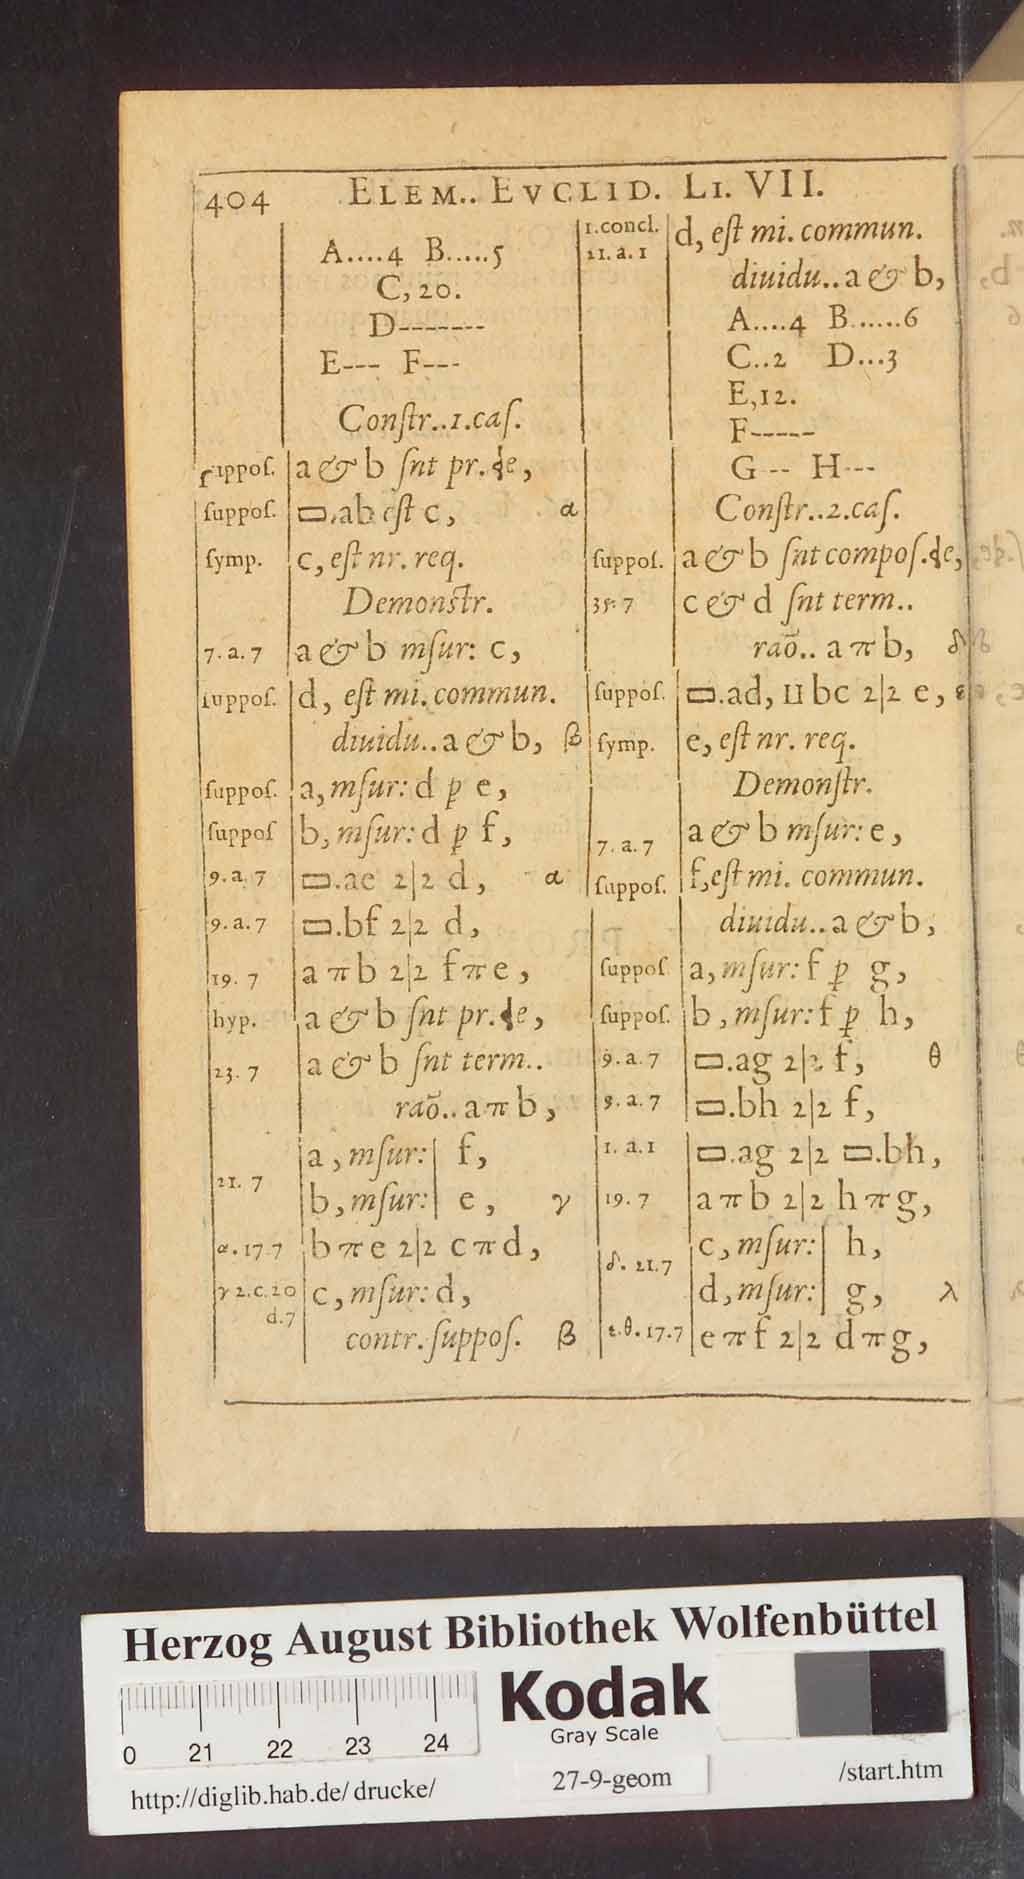 404 ELEM.. EVCLID. LI. VII.
A....4 B.....5
C, 20.
D-------
E--- F---
Conſtr..1.caſ.
ſuppoſ. a & b ſnt pr.
ſuppoſ. ▭.ab eſt c, α
ſymp. c, eſt nr. req.
Demonſtr.
7. a. 7 a & b mſur: c,
ſuppoſ. d, eſt mi. commun.
diuidu.. a & b, β
ſuppoſ. a, mſur: d ꝑ e,
ſuppoſ b, mſur: d ꝑ f,
9. a. 7 ▭.ae 2|2 d, α
9. a. 7 ▭.bf 2|2 d,
19. 7 a π b 2|2 f π e,
hyp. a & b ſnt pr.
23. 7 a & b ſnt term..
raõ.. a π b,
21. 7 a, mſur: | f,
b, mſur: | e, γ
α. 17.7 b π e 2|2 c π d,
γ 2. c. 20 c, mſur: d,
d.7
contr. ſuppoſ. β
1.concl. d, eſt mi. commun.
21. a. 1
diuidu.. a & b,
A....4 B......6
C..2 D...3
E,12.
F-----
G -- H ---
Conſtr..2.caſ.
ſuppoſ. a & b ſnt compoſ.
35. 7 c & d ſnt term..
raõ.. a π b, δ
ſuppoſ. ▭.ad, II bc 2|2 e, ε
ſymp. e, eſt nr. req.
Demonſtr.
7. a. 7 a & b mſur: e,
ſuppoſ. f, eſt mi. commun.
diuidu.. a & b,
ſuppoſ a, mſur: f ꝑ g,
ſuppoſ. b, mſur: f ꝑ h,
9. a. 7 ▭.ag 2|2 f, θ
9. a. 7 ▭.bh 2|2 f,
1. a. 1 ▭.ag 2|2 ▭.bh,
19. 7 a π b 2|2 h π g,
δ. 21.7 c, mſur: | h,
d, mſur: | g, λ
ε. θ. 17.7 e π f 2|2 d π g,
Herzog August Bibliothek Wolfenbüttel
Kodak
Gray Scale
0 21 22 23 24
http://diglib.hab.de/ drucke/ 27-9-geom /start.htm